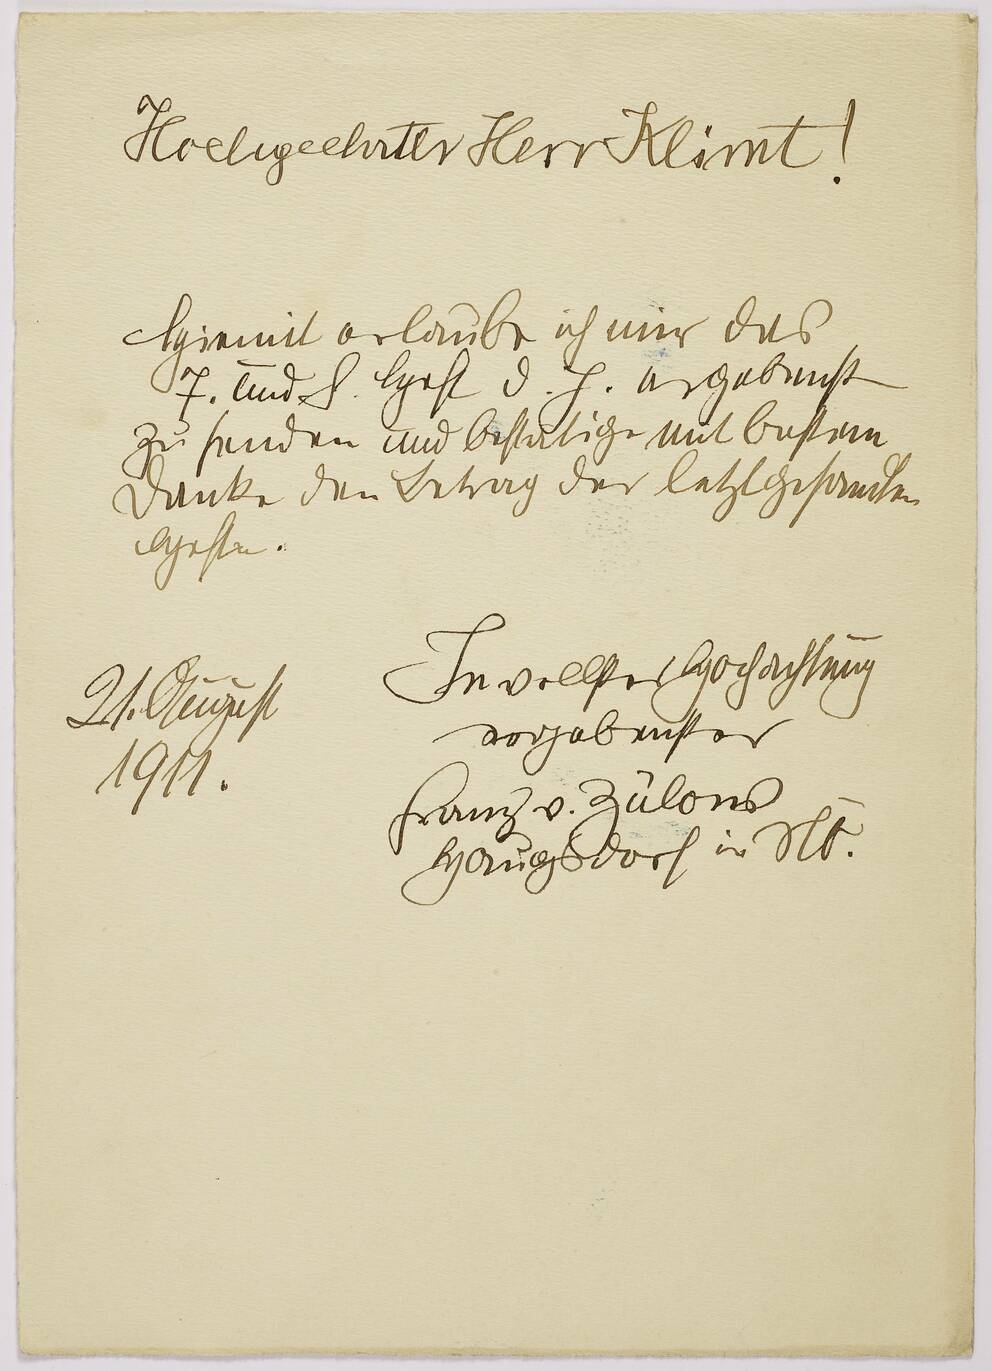 Hochgeehrter Herr Klimt!
Hiemit erlaube ich mir das
7. und 8. Heft d. J. ergebenst
zu senden und bestätige mit bestem
Danke den Betrag der letztgesandten
Hefte.
In vollster Hochachtung
ergebenster
Franz v. Zülow
Haugsdorf in NÖ.
21. August
1911.